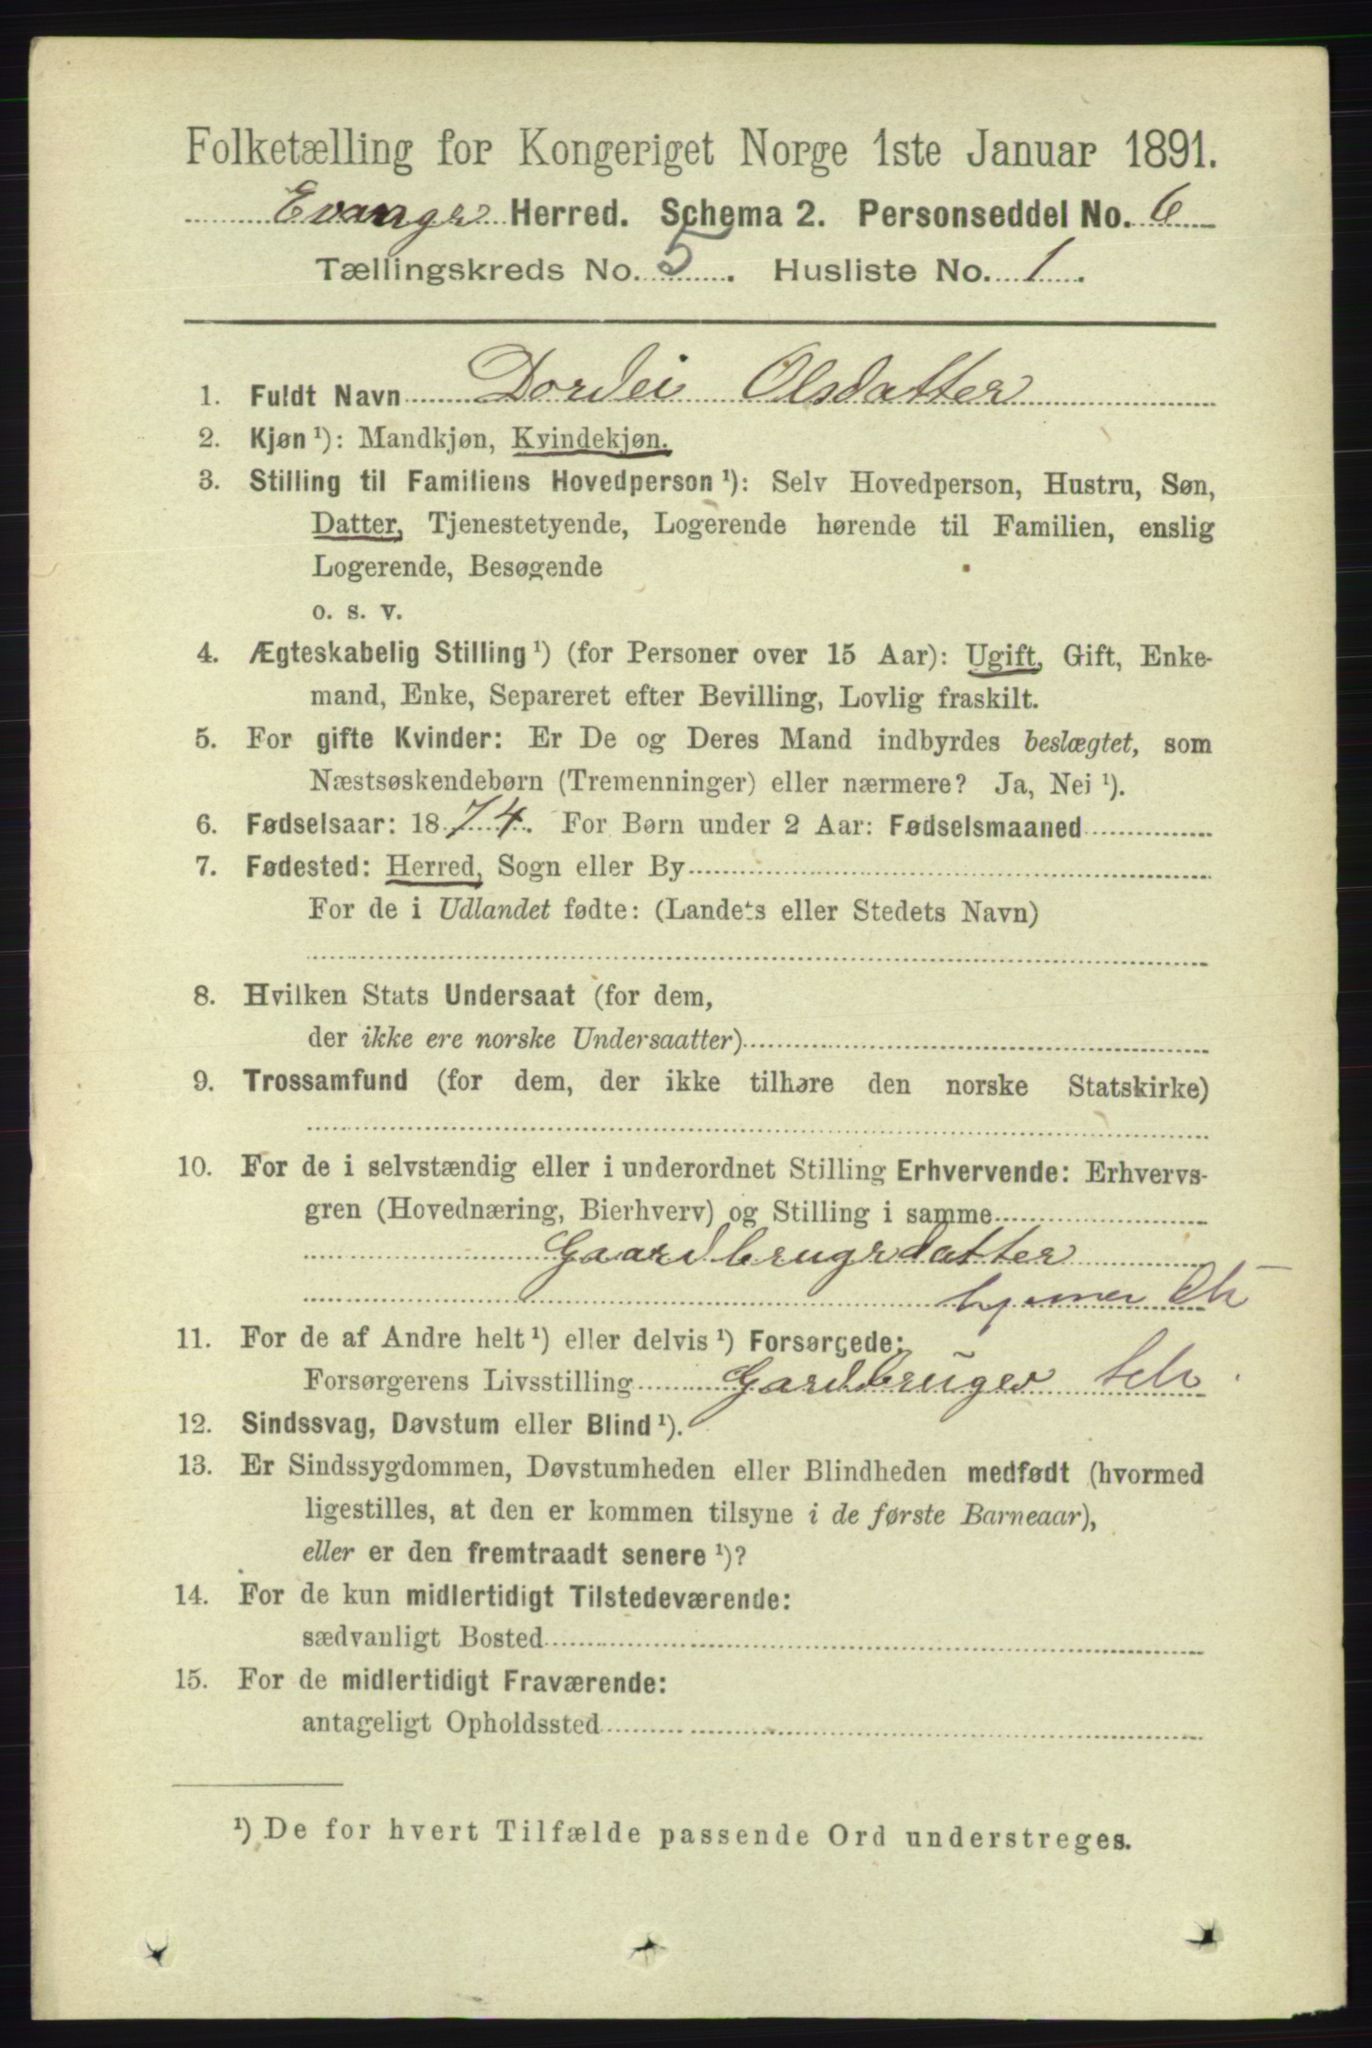 Folketælling for Kongeriget Norge 1ste Januar 1891.
Evanger Herred. Schema 2. Personseddel No. 6
Tællingskreds No. 5. Husliste No. 1.
1. Fuldt Navn Dordei Olsdatter
2. Kjøn ¹): Mandkjøn, Kvindekjøn.
3. Stilling til Familiens Hovedperson ¹): Selv Hovedperson, Hustru, Søn,
Datter, Tjenestetyende, Logerende hørende til Familien, enslig
Logerende, Besøgende
o. s. v.
4. Ægteskabelig Stilling ¹) (for Personer over 15 Aar): Ugift, Gift, Enke-
mand, Enke, Separeret efter Bevilling, Lovlig fraskilt.
5. For gifte Kvinder: Er De og Deres Mand indbyrdes beslægtet, som
Næstsøskendebørn (Tremenninger) eller nærmere? Ja, Nei ¹).
6. Fødselsaar: 1874. For Børn under 2 Aar: Fødselsmaaned
7. Fødested: Herred, Sogn eller By
For de i Udlandet fødte: (Landets eller Stedets Navn)
8. Hvilken Stats Undersaat (for dem,
der ikke ere norske Undersaatter)
9. Trossamfund (for dem, der ikke tilhøre den norske Statskirke)
10. For de i selvstændig eller i underordnet Stilling Erhvervende: Erhvervs-
gren (Hovednæring, Bierhverv) og Stilling i samme
Gaardbrugrdatter
11. For de af Andre helt ¹) eller delvis ¹) Forsørgede:
Forsørgerens Livsstilling Gardbruger Selv
12. Sindssvag, Døvstum eller Blind ¹).
13. Er Sindssygdommen, Døvstumheden eller Blindheden medfødt (hvormed
ligestilles, at den er kommen tilsyne i de første Barneaar),
eller er den fremtraadt senere ¹)?
14. For de kun midlertidigt Tilstedeværende:
sædvanligt Bosted
15. For de midlertidigt Fraværende:
antageligt Opholdssted
¹) De for hvert Tilfælde passende Ord understreges.